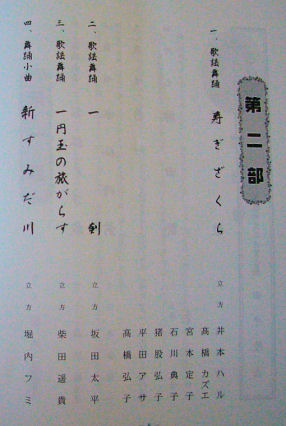 第二部
一、歌謡舞踊 寿ぎざくら 立方 井本ハル
高橋カズエ
宮本定子
石川典子
猪股弘子
平田アサ
高橋弘子
二、歌謡舞踊 一剣 立方 坂田太平
三、歌謡舞踊 一円玉の旅がらす 立方 柴田遥貴
四、舞踊小曲 新すみだ川 立方 堀内フミ